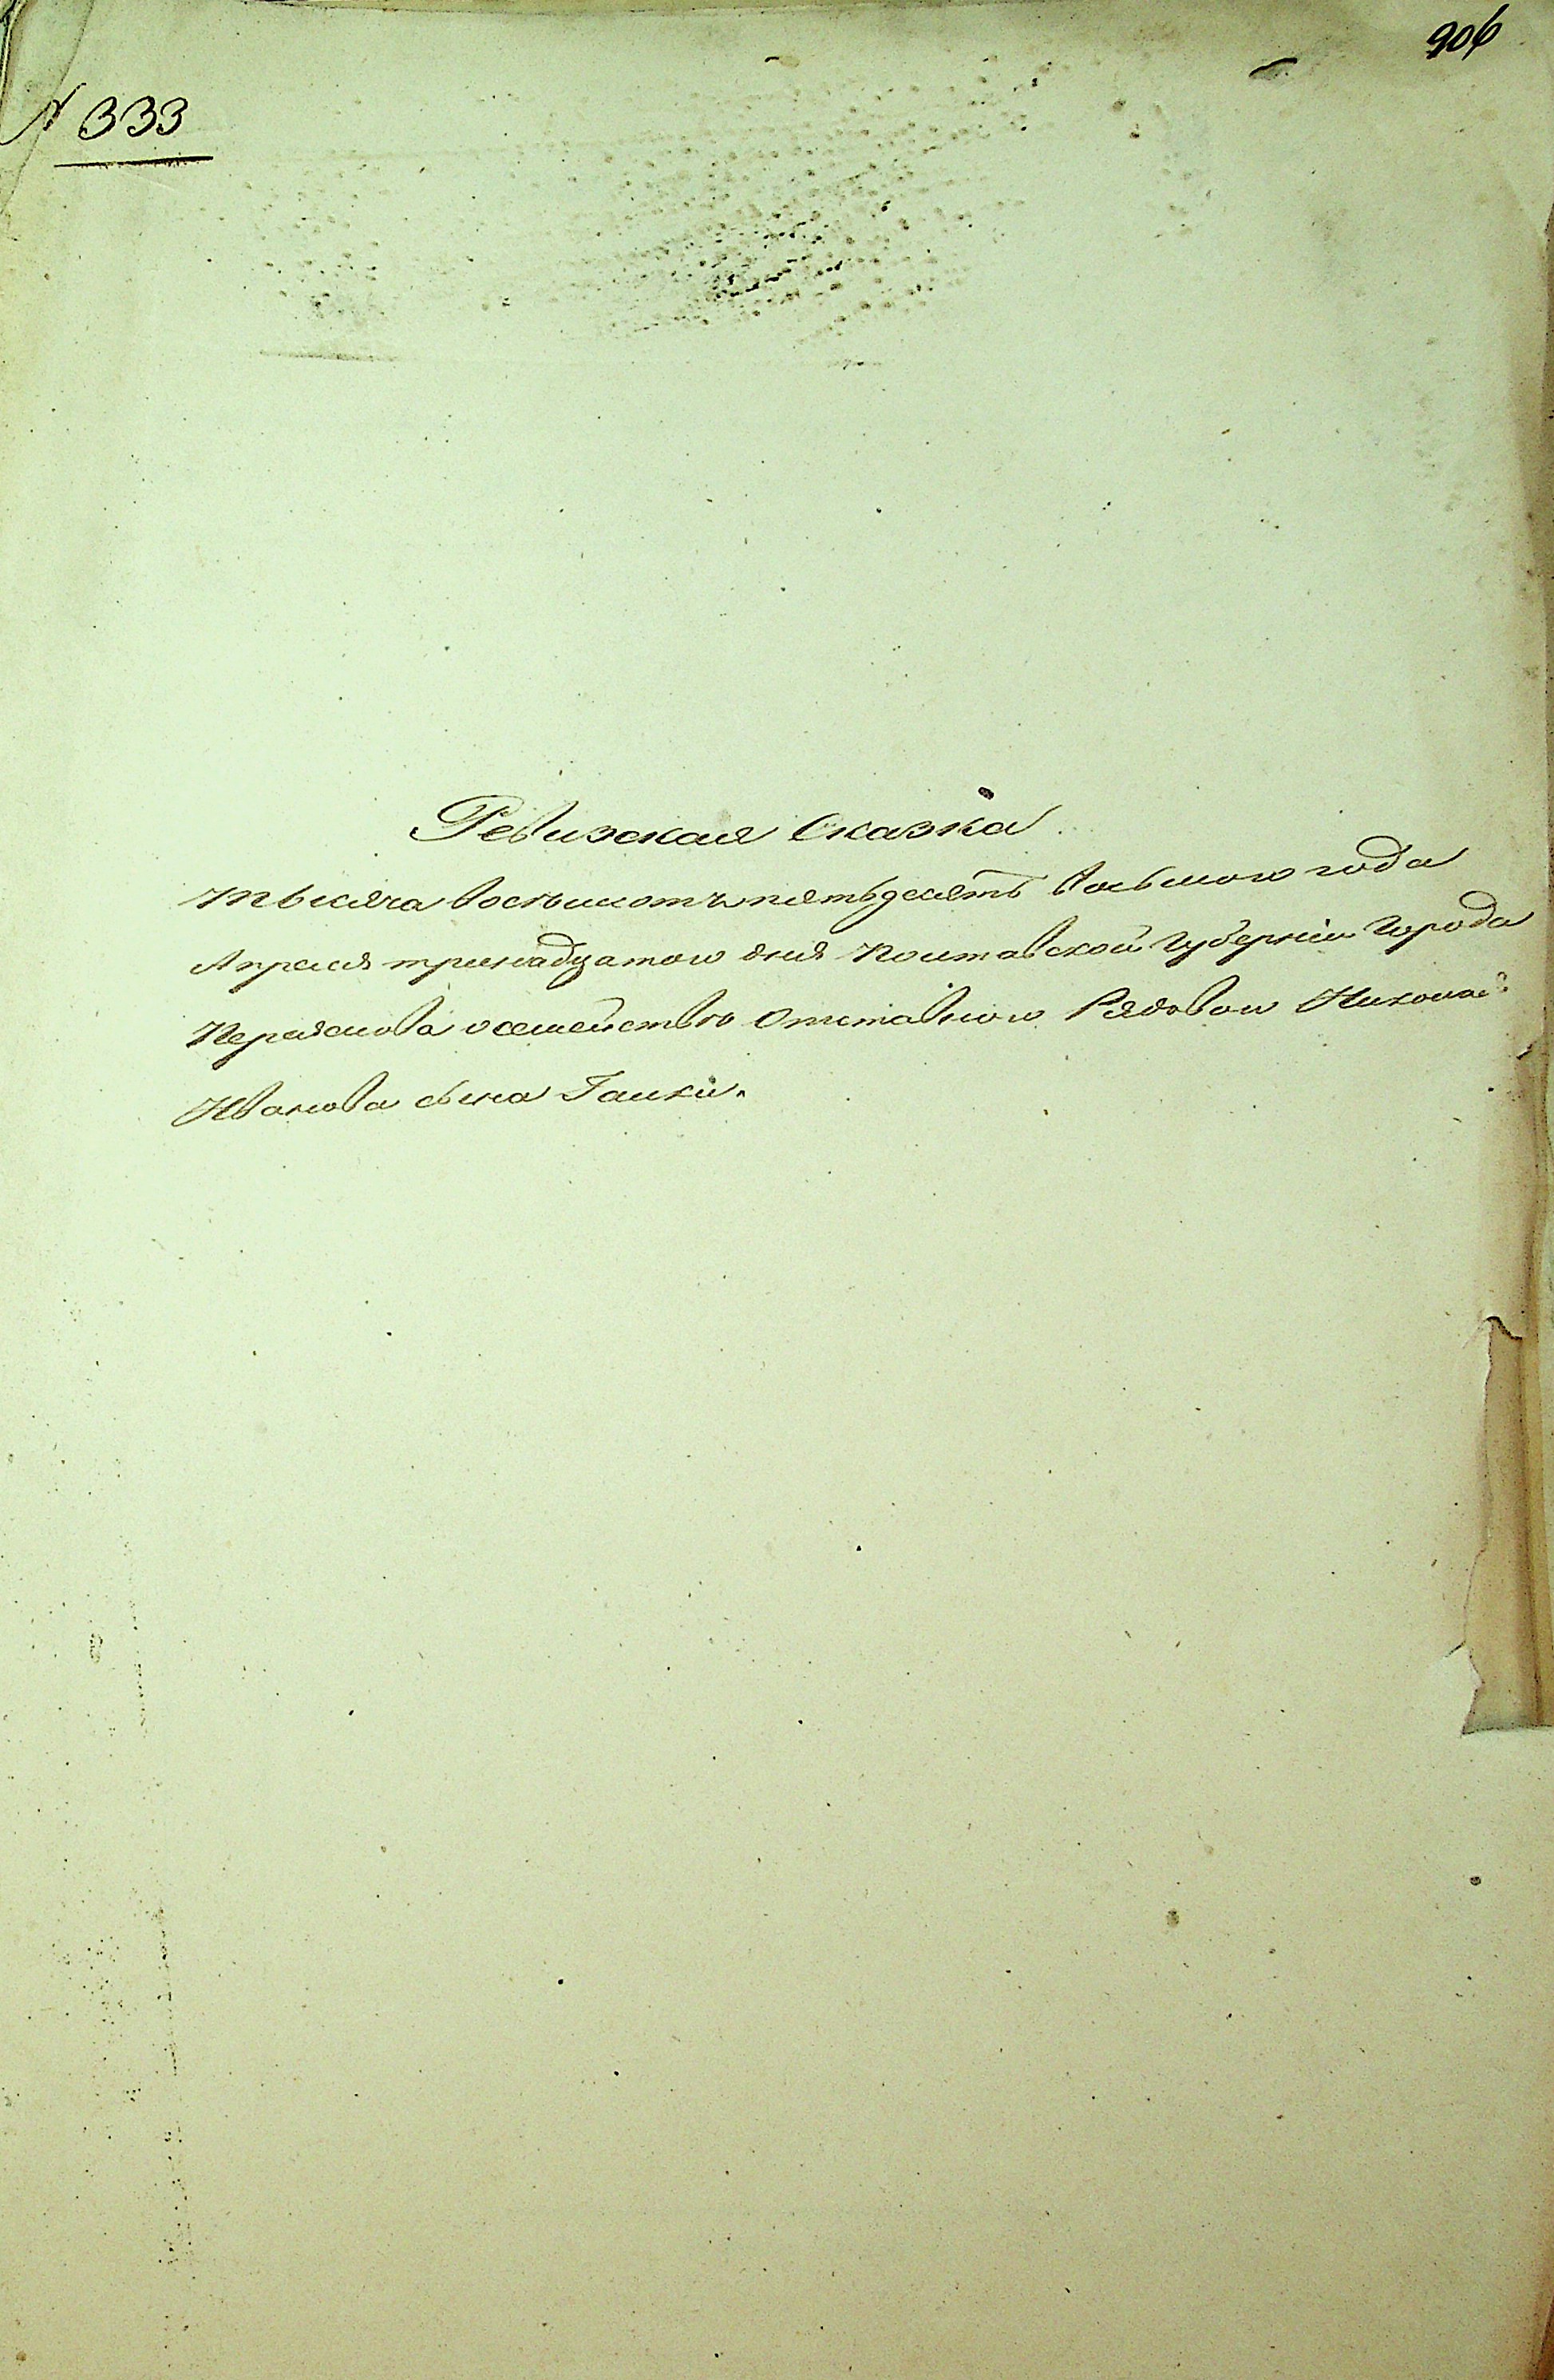 906
№ 333
Ревизская Сказка
тысяча восемьсотъ пятьдесятъ восьмого года
Апреля тринадцатого дня Полтавской Губерніи Города
Переяслова о семействе Отставного Рядового Николая
Иванова сына Галки.